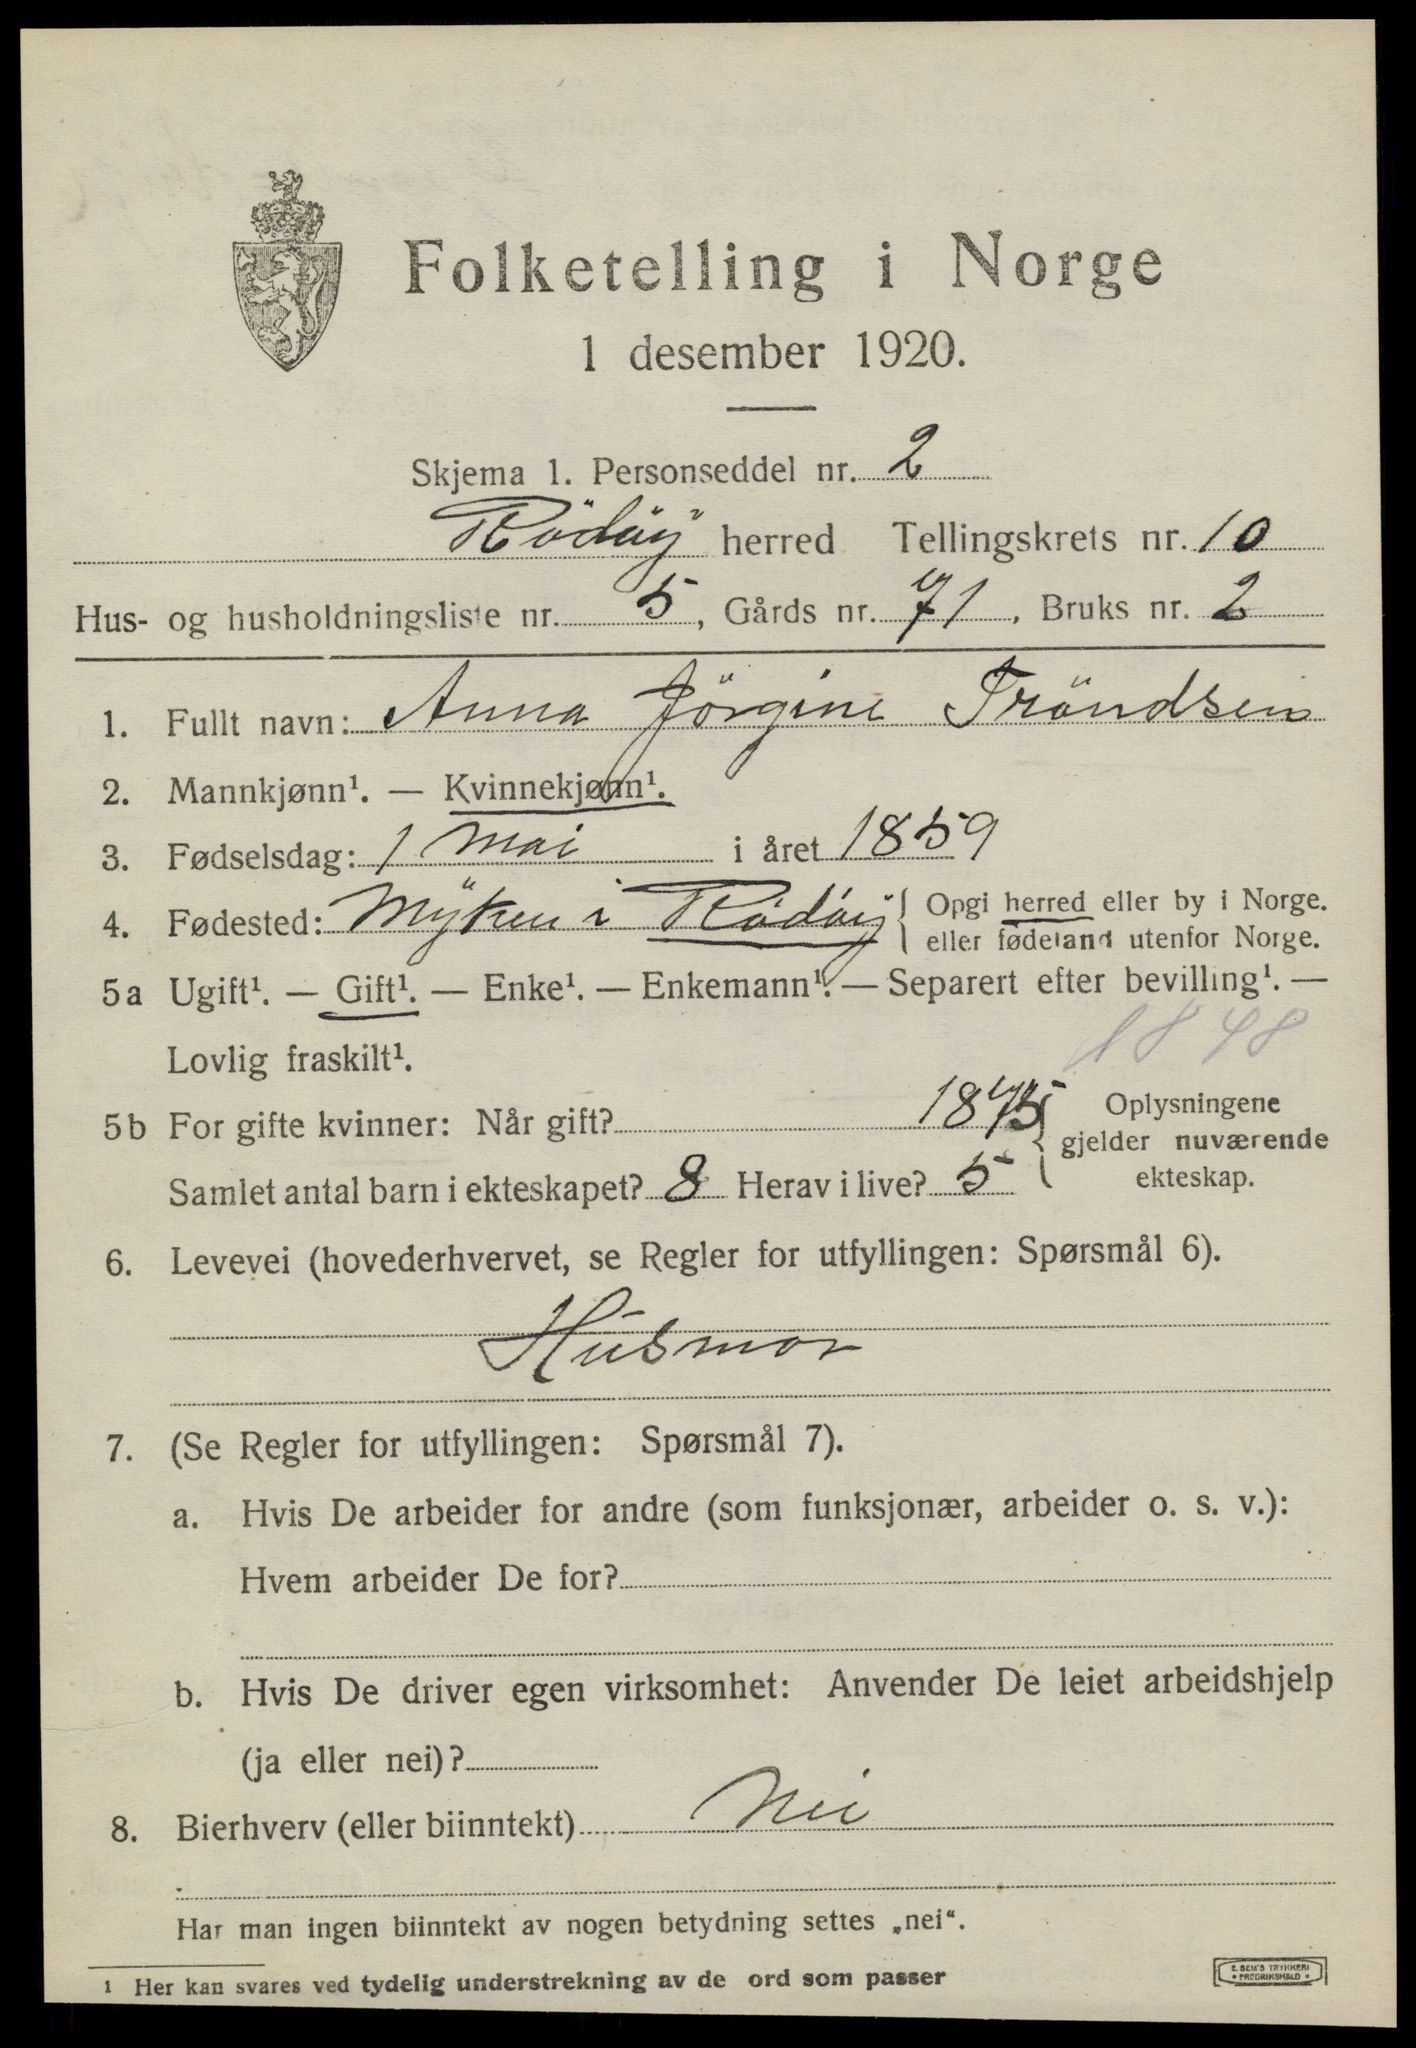 Folketelling i Norge
1 desember 1920.
Skjema 1. Personseddel nr. 2
Rödöy herred Tellingskrets nr. 10
Hus- og husholdningsliste nr. 5, Gårds nr. 71, Bruks nr. 2
1. Fullt navn: Anna Jörgine Tröndsen
2. Mannkjønn¹. — Kvinnekjønn¹.
3. Fødselsdag: 1 Mai i året 1859
4. Fødested: Myken i Rödöy { Opgi herred eller by i Norge.
eller fødeland utenfor Norge.
5a Ugift¹. — Gift¹. — Enke¹. — Enkemann¹. — Separert efter bevilling¹. —
Lovlig fraskilt¹.
1848
5b For gifte kvinner: Når gift? 1875 { Oplysningene
gjelder nuværende
Samlet antal barn i ekteskapet? 8 Herav i live? 5 ekteskap.
6. Levevei (hovederhvervet, se Regler for utfyllingen: Spørsmål 6).
Husmor
7. (Se Regler for utfyllingen: Spørsmål 7).
a. Hvis De arbeider for andre (som funksjonær, arbeider o. s. v.):
Hvem arbeider De for?
b. Hvis De driver egen virksomhet: Anvender De leiet arbeidshjelp
(ja eller nei)?
8. Bierhverv (eller biinntekt) Nei
Har man ingen biinntekt av nogen betydning settes „nei“.
1 Her kan svares ved tydelig understrekning av de ord som passer
E. SEM'S TRYKKERI
FREDRIKSHALD